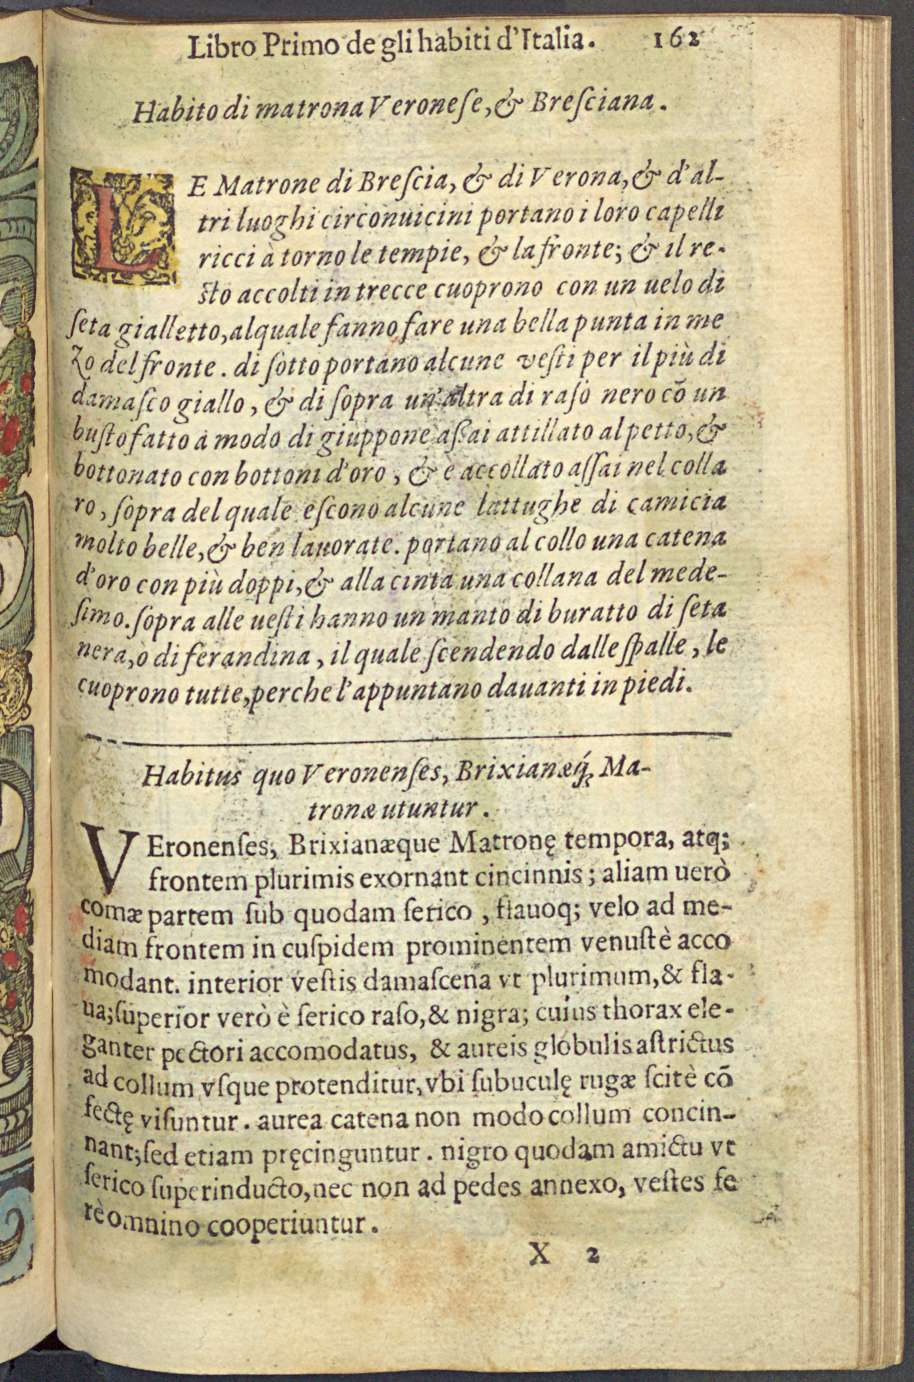 Libro Primo de gli habiti d'Italia. 162
Habito di matrona Veroneſe, & Breſciana.
LE Matrone di Breſcia, & di Verona, & d'al-
tri luoghi circonuicini portano i loro capelli
ricci à torno le tempie, & la fronte; & il re-
ſto accolti in trecce cuoprono con un uelo di
ſeta gialletto, al quale fanno fare una bella punta in me
zo del fronte. di ſotto portano alcune veſti per il più di
damaſco giallo, & di ſopra un'altra di raſo nero cõ un
buſto fatto à modo di giuppone aſſai attillato al petto, &
bottonato con bottoni d'oro, & è accollato aſſai nel colla
ro, ſopra del quale eſcono alcune lattughe di camicia
molto belle, & ben lauorate. portano al collo una catena
d'oro con più doppi, & alla cinta una collana del mede-
ſimo. ſopra alle ueſti hanno un manto di buratto di ſeta
nera, o di ferandina, il quale ſcendendo dalle ſpalle, le
cuoprono tutte, perche l'appuntano dauanti in piedi.
Habitus quo Veronenſes, Brixianæq́; Ma-
tronæ utuntur.
VEronenſes, Brixianæque Matronę tempora, atq;
frontem plurimis exornant cincinnis; aliam uerò
comæ partem ſub quodam ſerico, flauoq; velo ad me-
diam frontem in cuſpidem prominentem venuſtè acco
modant. interior veſtis damaſcena vt plurimum, & fla-
ua; ſuperior verò è ſerico raſo, & nigra; cuius thorax ele-
ganter pectori accomodatus, & aureis globulis aſtrictus
ad collum vſque protenditur, vbi ſubuculę rugæ ſcitè cõ
fectę viſuntur. aurea catena non modo collum concin-
nant; ſed etiam pręcinguntur. nigro quodam amictu vt
ſerico ſuperinducto, nec non ad pedes annexo, veſtes fe
rè omnino cooperiuntur.
X 2